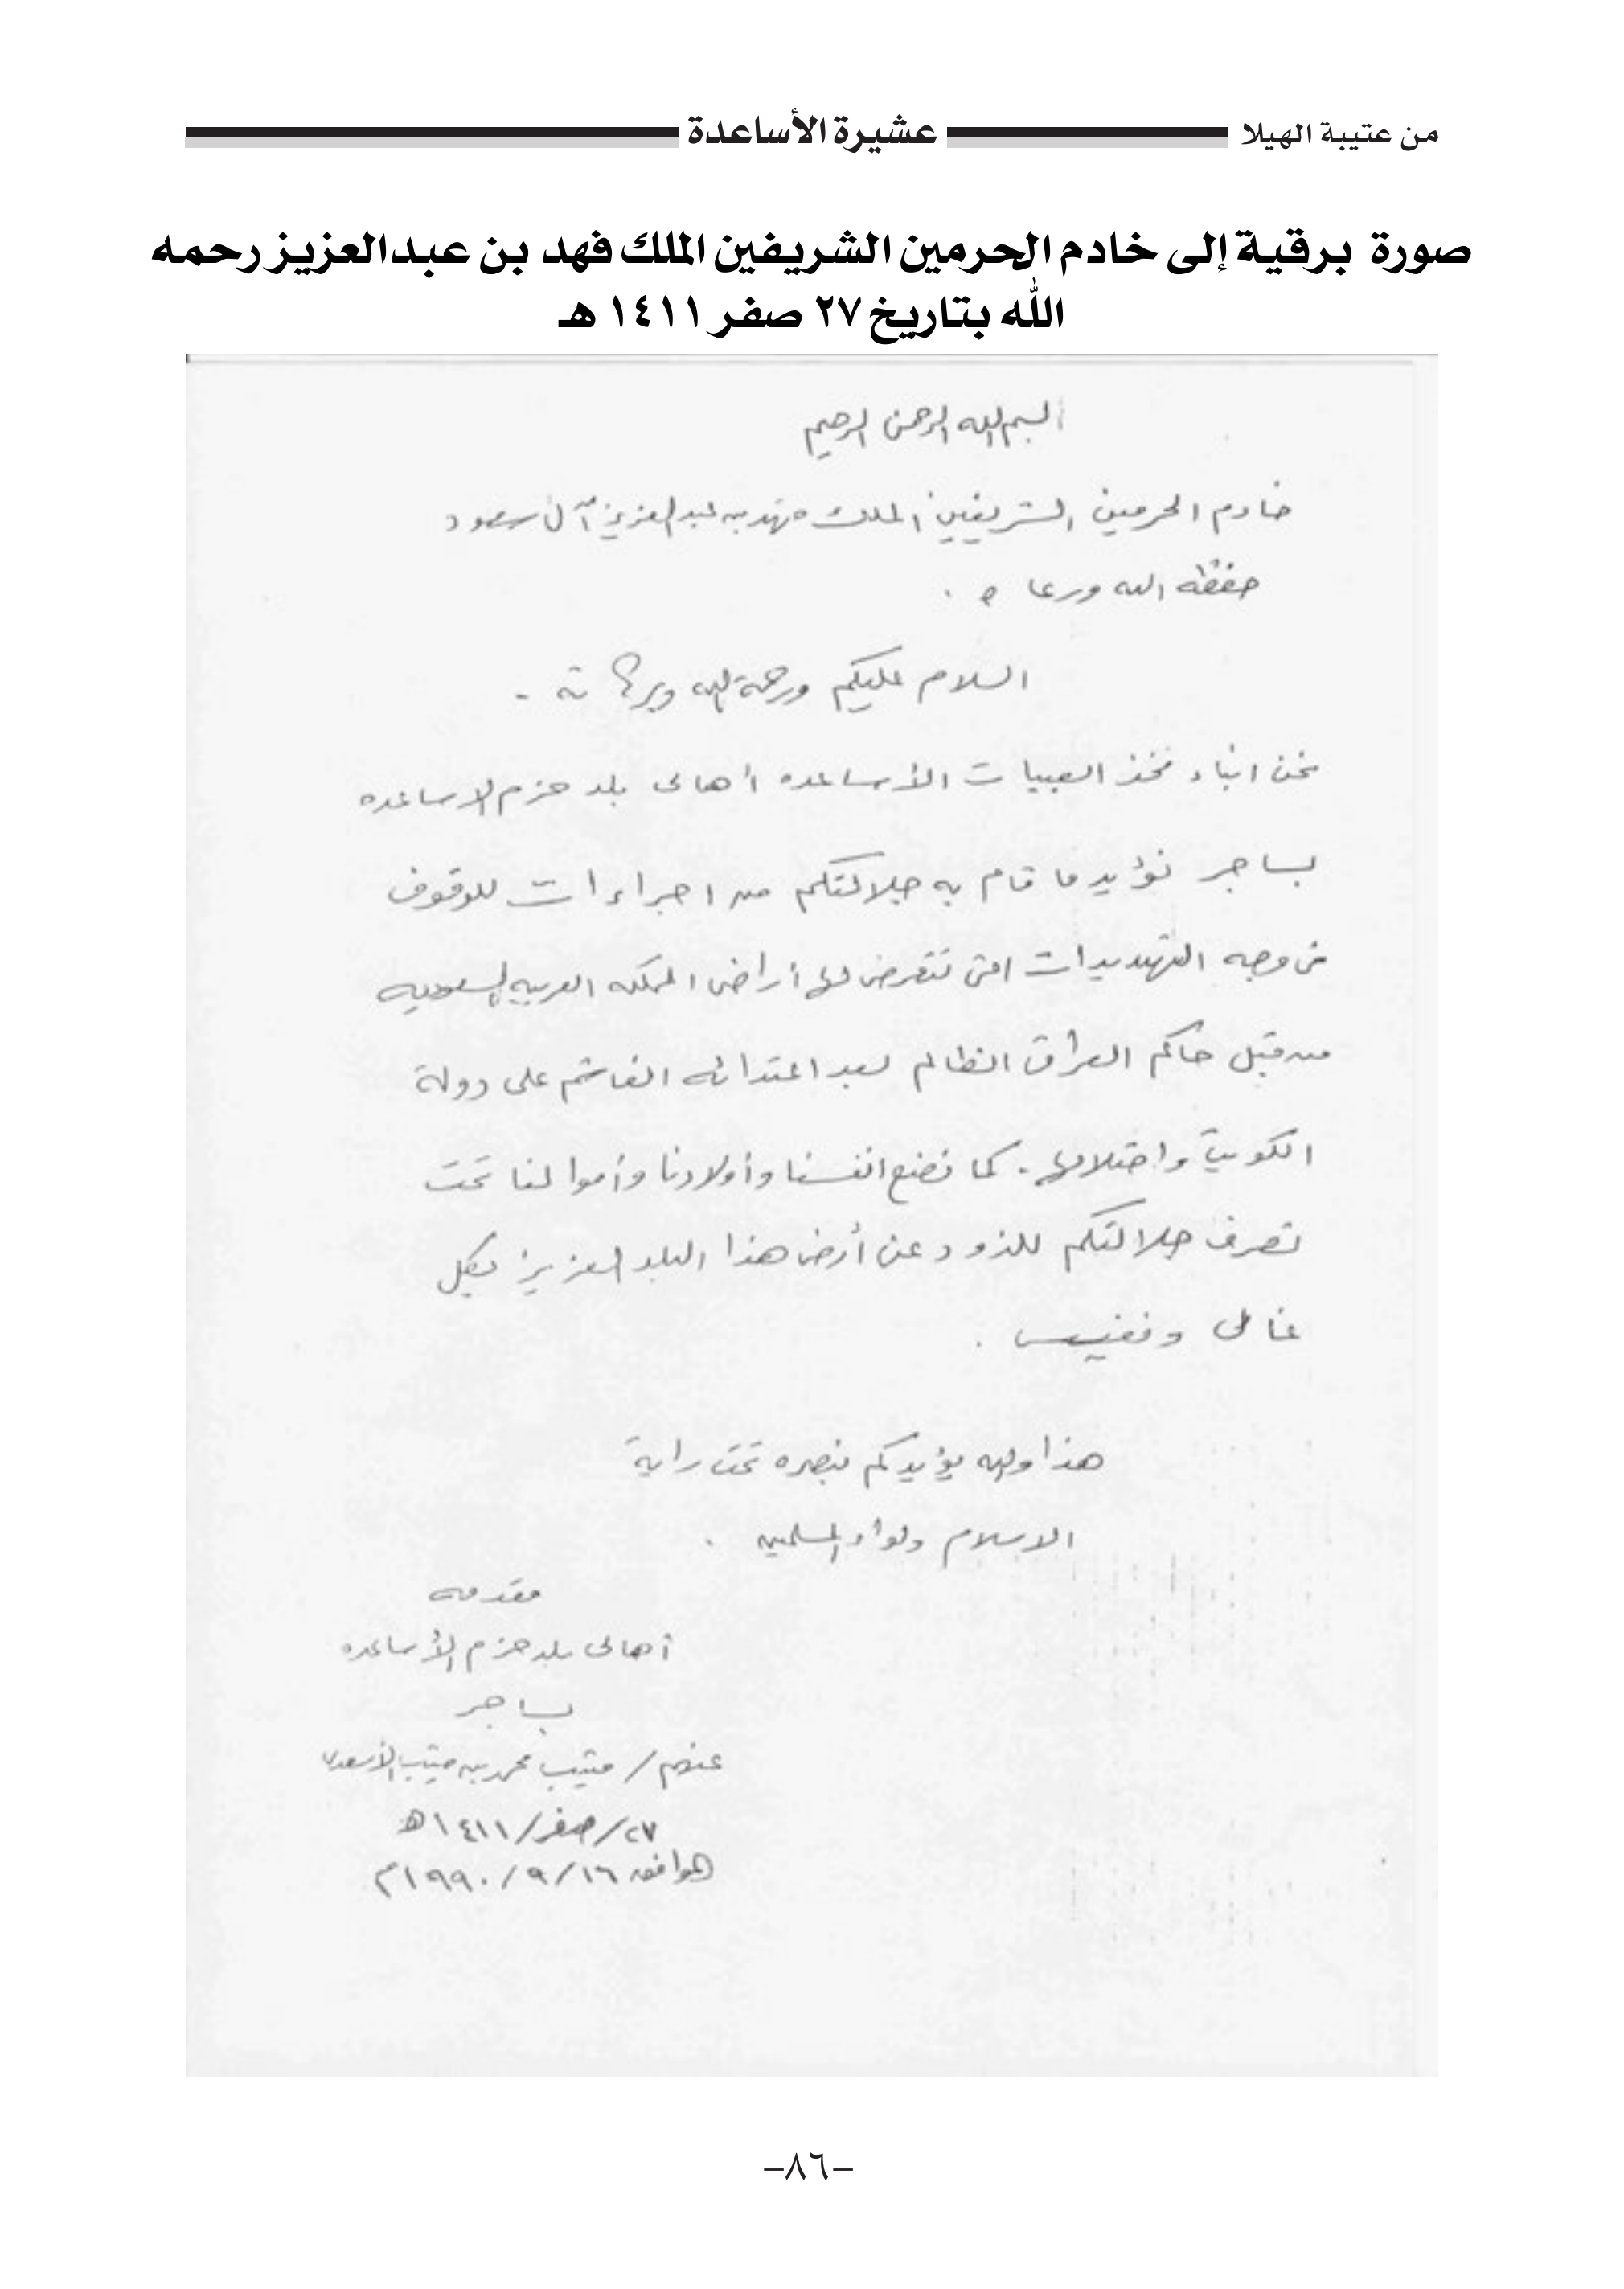 من عتيبة الهيلا عشيرة الأساعدة
صورة برقية إلى خادم الحرمين الشريفين الملك فهد بن عبدالعزيز رحمه
الله بتاريخ ٢٧ صفر ١٤١١ هـ
بسم الله الرحمن الرحيم
خادم الحرمين الشريفين الملك فهد بن عبد العزيز آل سعود
حفظه الله ورعاه .
السلام عليكم ورحمة الله وبركاته -
نحن ابناء فخذ العبيات الأساعده أهالى بلد حزم الاساعده
بساجر نؤيد ما قام به جلالتكم من اجراءات للوقوف
فى وجه التهديدات التى تتعرض لها أراضى المملكه العربيه السعوديه
من قبل حاكم العراق الظالم بعد اعتدائه الغاشم على دولة
الكويت واحتلالها . كما نضع انفسنا وأولادنا وأموالنا تحت
تصرف جلالتكم للذود عن أرض هذا البلد العزيز بكل
غالى ونفيس .
هذا والله يؤيدكم بنصره تحت راية
الاسلام ولواء المسلمين .
مقدمه
أهالى بلد حزم الأساعده
بساجر
عنهم / متيب محمد بن متيب الأسعدى
٢٧/صفر/١٤١١هـ
الموافق ١٦/٩/١٩٩٠م
-٨٦-